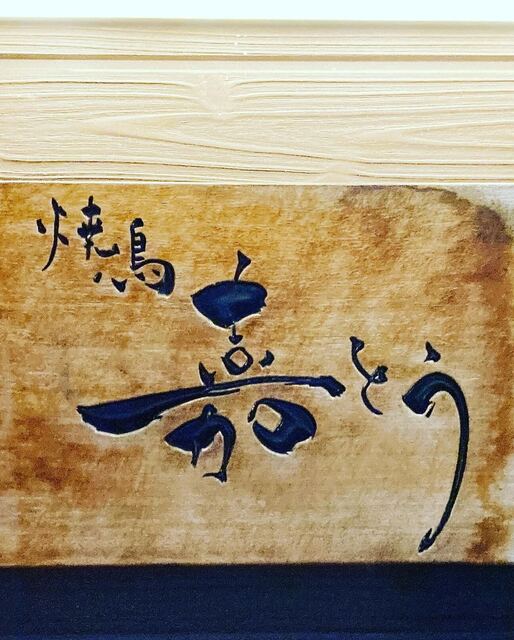 焼鳥
嘉とう